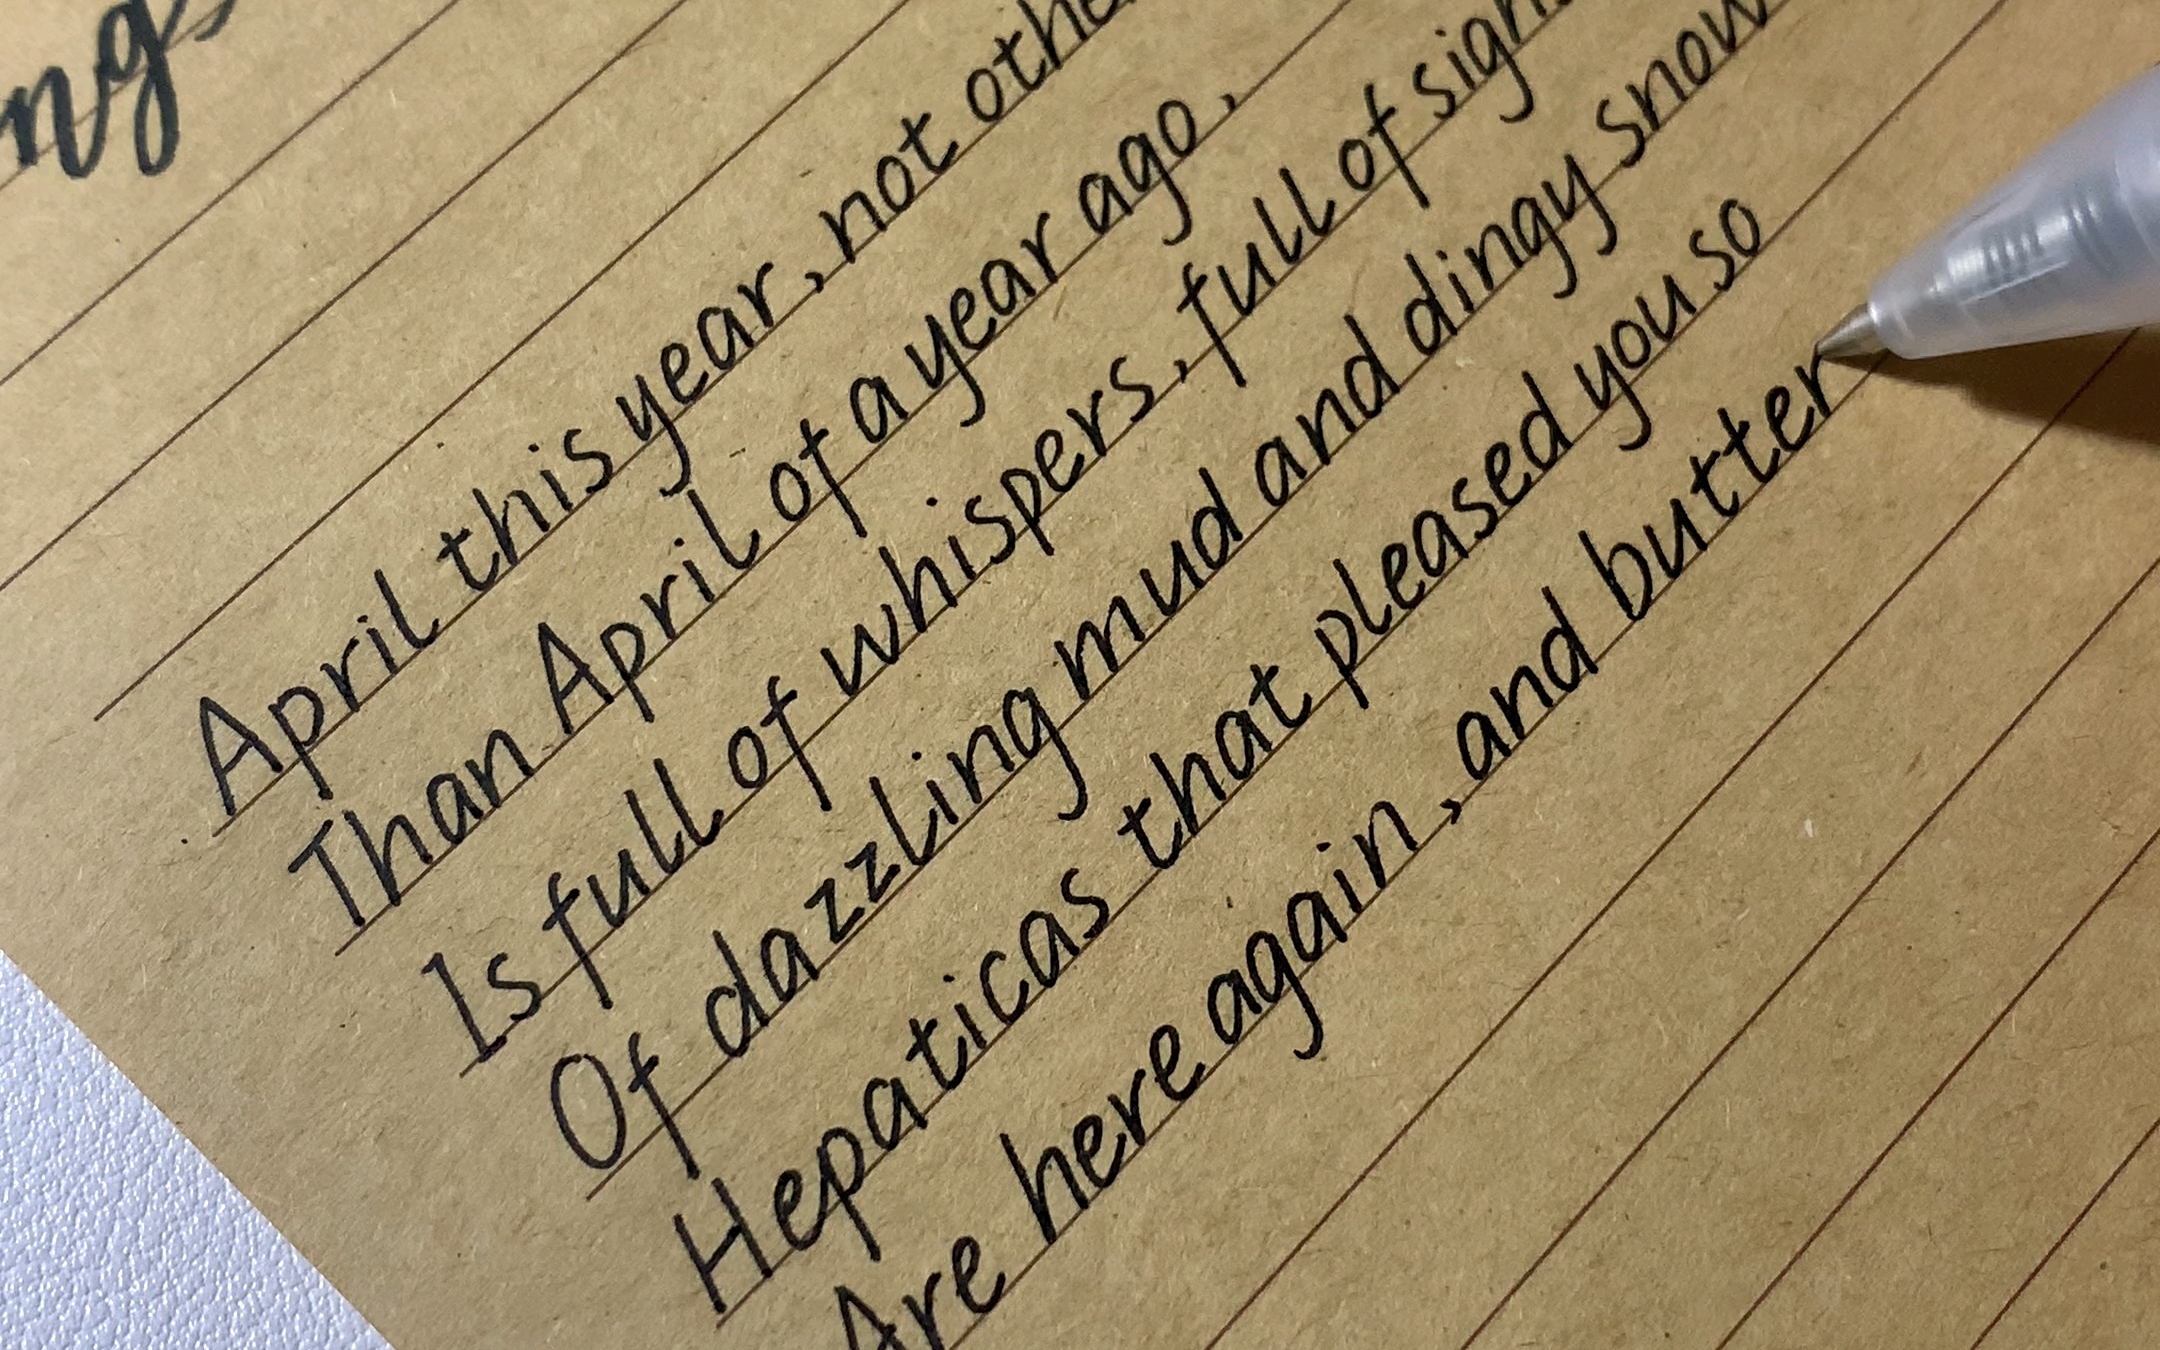 ng
April this year, not othe
Than April of a year ago,
Is full of whispers, full of sigh
Of dazzling mud and dingy snow
Hepaticas that pleased you so
Are here again, and butter